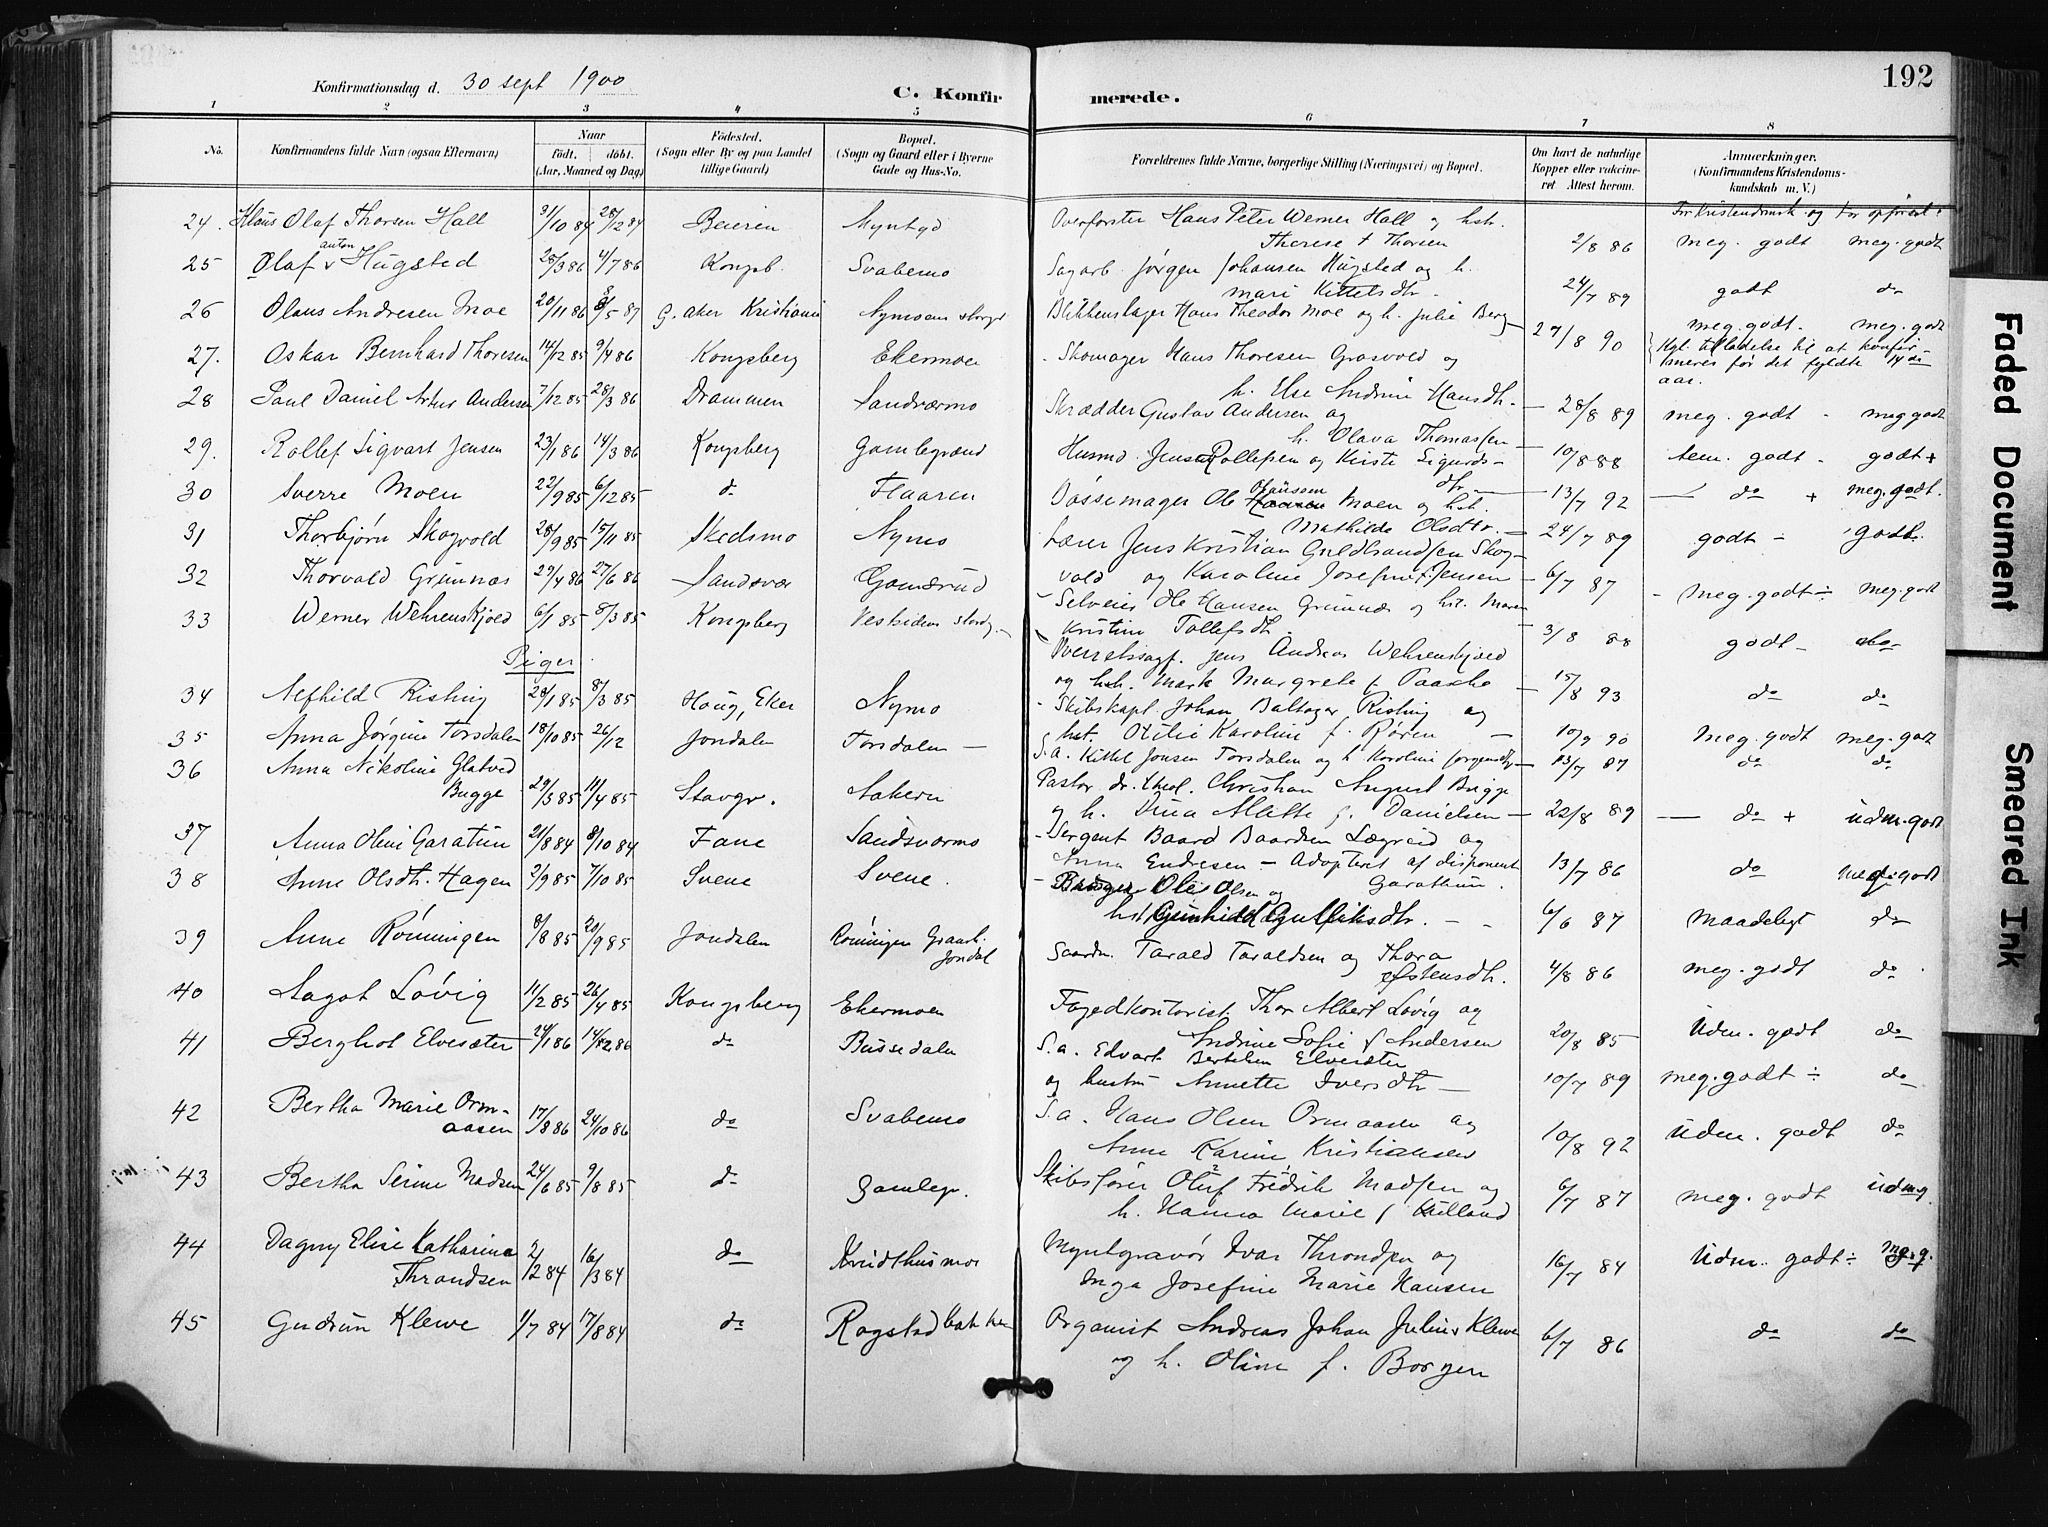 192
Konfirmationsdag d. 30 sept 1900
C. Konfirmerede.
1 2 3 4 5 6 7 8
No. Konfirmandens fulde Navn (ogsaa Efternavn) Naar født. døbt. (Aar, Maaned og Dag) Fødested. (Sogn eller By og paa Landet tillige Gaard) Bopæl. (Sogn og Gaard eller i Byerne Gade og Hus-No. Forældrenes fulde Navne, borgerlige Stilling (Næringsvei) og Bopæl. Om havt de naturlige Kopper eller vaccineret Attest herom. Anmærkninger. (Konfirmandens Kristendomskundskab m. V.)
24. Klaus Olaf Thorsen Hall 31/10 84 28/12 84 Beieren Myntgd Overførster Hans Peter Werner Hall og hst.
Therese f Thorsen 2/8 86 meg. godt meg. godt
25 Olaf anton Hugsted 28/3 86 4/7 86 Kongsb. Svabemo Sagarb. Jørgen Johansen Hugsted og h.
Mari Kittelsdtr. 24/7 89 godt do
26 Olaus Andresen Moe 20/11 86 8/5 87 G. aker Kristiania Nymoens storgd Blikkenslager Hans Theodor Moe og h. Julie Berg 27/8 90 meg. godt. meg. godt
Kgl. tilladelse til at konfirmeres før det fyldte 14de aar.
27. Oskar Bernhard Thoresen 14/12 85 9/4 86 Kongsberg Ekermoen - Skomager Hans Thoresen Grosvold og
h. Else Andrine Hansdtr.
28 Paul Daniel Artur Andersen 7/12 85 28/3 86 Drammen Sandsværmo Skrædder Gustav Andersen og 28/8 89 meg. godt - meg godt
h. Olava Thomassen
29. Rollef Sigvart Jensen 23/1 86 14/3 86 Kongsberg Gamlegrænd Husmd. Jens Rollefsen og Kirsti Sigurdsdtr. 10/8 88 tem. godt - godt +
30 Sverre Moen 22/9 85 6/12 85 do Flaaren Bøssemager Ole Olausson Moen og hst. 13/7 92 do + meg. godt.
Mathilde Olsdtr.
31 Thorbjørn Skogvold 28/9 85 15/11 85 Skedsmo Nymo Lærer Jens Kristian Guldbrandsen Skogvold og Karoline Josefine f. Jensen 24/7 89 godt - godt.
32 Thorvald Grunnæs 29/4 86 27/6 86 Sandsvær Gomsrud 6/7 87
- Selveier Ole Hansen Grunnæs og hst. Maren - meg. godt ÷ meg. godt
Kristine Tollefsdtr.
33 Werner Wehrenskjold 6/1 85 8/3 85 Kongsberg Vestsidens stordg. 3/8 88 godt - do
Overretssagf. Jens Andreas Wehrenskjold
og hst. Mark Margrete f Paaske
Piger
34 Alfhild Risting 28/1 85 8/3 85 Houg, Eker Nymo 15/8 93 do do
- Skibskapt. Johan Baltazar Risting og
hst. Otilie Karoline f. Røren
35 Anna Jørgine Torsdalen 18/10 85 26/12 Jondalen Torsdalen 10/9 90 meg. godt meg. godt
S.a. Kittel Jonsen Torsdalen og h Karoline Jørgensdtr 13/7 87 do do
36 Anna Nikoline Glatved
Bugge 29/3 85 11/4 85 Stavgr. Aakern Pastor dr. theol. Christian August Bugge
og h. Dina Alette f. Danielsen 22/8 89 do + üdm. godt
37 Anna Oline Garatun 21/8 84 8/10 84 Fane Sandsværmo - Sergent Baard Baardsen Lægreid og
Anna Endresen - Adopteret af disponent 13/7 86 do meg. godt
Garathun.
38 Anne Olsdtr. Hagen 2/9 85 7/10 85 Svene Svene. Ole Olsen og
hst Gunhild Gulliksdtr. 6/6 87 maadeligt do
39 Anne Rønningen 8/8 85 20/9 85 Jondalen Rønningen Graarb. Jondal Gaardm. Tarald Taraldsen og Thora
Østensdtr. 4/8 86 meg. godt do
40 Aagot Løvig 11/2 85 26/4 85 Kongsberg Ekermoen Fogedkontorist Thor Albert Løvig og
Andrine Sofie f Andersen 20/8 85 Udm. godt do
41 Berghot Elvesæter 24/1 86 14/2 86 do Bussedalen S.a. Edvart Bertelsen Elvesæter
og hustru Annette Iversdtr 10/7 89 meg. godt ÷ do
42 Bertha Marie Ormaasen 17/8 86 24/10 86 do Svabemo S.a. Hans Olsen Ormaasen og
Anne Karine Kristiansen 10/8 92 üdm. godt do
43 Bertha Serine Madsen 24/6 85 9/8 85 do gamlegr. Skibsfører Oluf Fredrik Madsen og
h. Hanna Marie f Kielland 6/7 87 meg. godt üdm g
44 Dagny Elise Katharina
Throndsen 2/2 84 16/3 84 do Krudthusmoe Myntgravør Ivar Throndsen og
Inga Josefine Marie Hansen 16/7 84 Udm. godt ÷ m. g.
45 Gudrun Klewe 1/7 84 17/8 84 do Rogstadbakken Organist Andreas Johan Julius Klewe
og h. Oline f. Borgen 6/7 86 do do
Faded Document
Smeared Ink